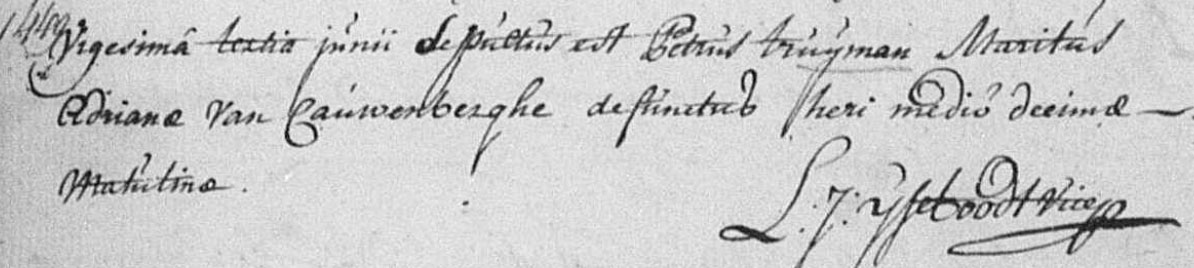 Vigesimâ tertia junii sepultus est Petrus truÿman Maritus
Adrianæ Van Cauwenberghe defunctus heri mediô decimæ —
Matutinæ.
L. J. ÿseboodt Vicep